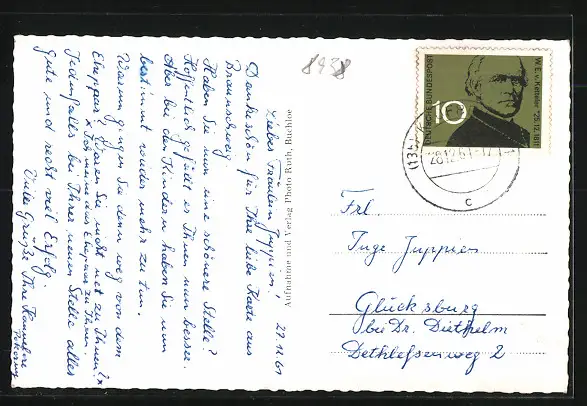 27.12.61
Liebes Fräulein Juppien!
Dankeschön für Ihre liebe Karte aus
Braunschweig.
Haben Sie nun eine schönere Stelle?
Hoffentlich gefällt es Ihnen nun besser.
Aber bei den Kindern haben Sie nun
bestimmt wieder mehr zu tun.
Warum gingen Sie denn weg von dem
Ehepaar? Waren Sie nicht nett zu Ihnen?x
x Ich meine das Ehepaar zu Ihnen.
Jedenfalls bei Ihrer neuen Stelle alles
Gute und recht viel Erfolg.
Viele Grüße Ihre Hannelore
Aufnahme und Verlag Photo Ruth, Buchloe
8938
DEUTSCHE BUNDESPOST
10
W. E. v. Ketteler *25.12.1811
(13b)
28.12.61-17
c
Frl.
Inge Juppien
Glücksburg
bei Dr. Diethelm
Dethleffsenweg 2